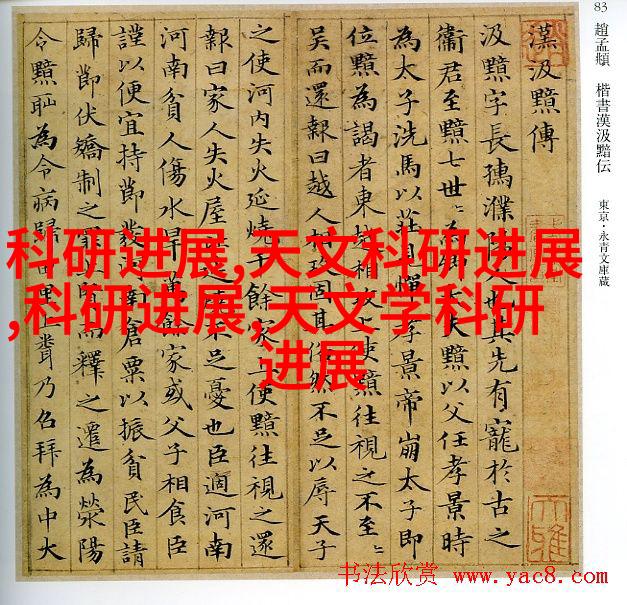 83 趙孟頫 楷書漢汲黯伝 東京・永青文庫蔵
漢汲黯傳
汲黯字長孺濮陽人也其先有寵於古之
衞君至黯七世〻為卿大夫黯以父任孝景時
為太子洗馬以莊見憚孝景帝崩太子即
位黯為謁者東越相攻上使黯往視之不至〻
吳而還報曰越人相攻固其俗然不足以辱天子
之使河內失火延燒千餘家上使黯往視之還
報曰家人失火屋不足憂也臣適河南
河南貧人傷水旱萬餘家或父子相食臣
謹以便宜持節發河南倉粟以振貧民臣請
歸節伏矯制之罪上賢而釋之遷為滎陽
令黯恥為令病歸田里上乃召拜為中大
科研进展,天文科研进展
,科研进展,天文学科研
进展
书法欣赏 www.yac8.com